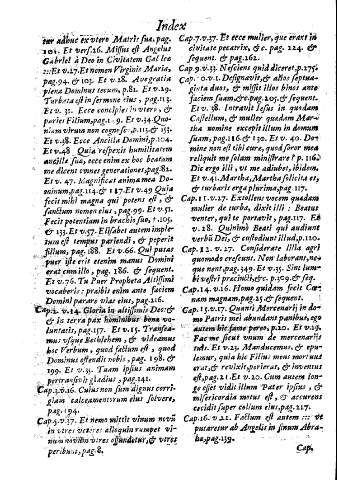 Index
tur adhuc ex utero Matris suæ, pag.
101. Et vers. 26. Missus est Angelus
Gabriel à Deo in Civitatem Galilææ
Et v. 27. Et nomen Virginis Maria,
pag. 94. & 103. Et v. 28. Ave gratia
plena Dominus tecum, p. 81. Et v. 29.
Turbata est in sermone eius, pag. 113.
Et v. 31. Ecce concipies in utero, &
paries Filium, pag. Et v. 34. Quo-
niam virum non cognosco, p. 113. & 153.
Et v. 38. Ecce Ancilla Domini, p. 104.
Et v. 48 Quia respexit humilitatem
ancillæ suæ, ecce enim ex hoc beatam
me dicent omnes generationes, pag. 82.
Et v. 47. Magnificat anima mea Do-
minum, pag. 114. & 117. Et v. 49 Quia
fecit mihi magna qui potens est, &
sanctum nomen eius, pag. 99. Et v. 51.
Fecit potentiam in brachio suo, p. 105.
& 133. Et v. 57. Elisabet autem imple-
tum est tempus pariendi, & peperit
filium, pag. 188. Et v. 66. Quis putas
puer iste erit etenim manus Domini
erat cum illo, pag. 186. & sequent.
Et v. 76. Tu Puer Propheta Altissimi
vocaberis: præibis enim ante faciem
Domini parare vias eius, pag. 216.
Cap. 2. v. 14. Gloria in altissimis Deo &
in terra pax hominibus bonæ vo-
luntatis, pag. 157. Et v. 15. Transea-
mus usque Bethlehem, & videamus
hoc Verbum, quod factum est, quod
Dominus ostendit nobis, pag. 198. &
199. Et v. 35. Tuam ipsius animam
pertransivit gladius, pag. 142.
Cap. 3. v. 16. Cuius non sum dignus corri-
giam calceamentorum eius solvere,
pag. 194.
Cap. 5. v. 37. Et nemo mittit vinum novũ
in utres veteres alioquin rumpet vi-
num novum utres effundetur, & utres
peribunt, pag. 8.
Cap. 7. v. 37. Et ecce mulier, quæ erat in
civitate peccatrix, &c. pag. 224. &
sequent. & 262.
Cap. 9. v. 33. Nesciens quid diceret, p. 175.
Cap. 10. v. 1. Designavit, & alios septua-
ginta duos, & misit illos binos ante
faciem suam, &c. pag. 205. & sequent.
Et v. 38. Intravit Iesus in quodam
Castellum, & mulier quædam Mar-
tha nomine excepit illum in domum
suam, pag. 116. & 130. Et v. 40. Do-
mine non est tibi curæ, quod soror mea
reliquit me solam ministrare? p. 116.
Dic ergo illi, ut me adiuvet, ibidem.
Et v. 41. Martha, Martha sollicita es,
& turbaris erga plurima, pag. 117.
Cap. 11. v. 27. Extollens vocem quædam
mulier de turba, dixit illi: Beatus
venter, qui te portavit, pag. 117. Et
v. 28. Quinimò Beati qui audiunt
verbũ Dei, & custodiunt illud, p. 120.
Cap. 12. v. 27. Considerate lilia agri
quomodo crescunt. Non laborant, ne-
que nent pag. 349. Et v. 35. Sint lum-
bi vestri præcincti, &c. p. 309. & seq.
Cap. 14. v. 16. Homo quidam fecit Cœ-
nam magnam, pag. 25. & sequent.
Cap. 15. v. 17. Quanti Mercenarij in do-
mo Patris mei abundant panibus, ego
autem hic fame pereo, p. 20. Et v. 19.
Fac me sicut unum de mercenarijs
tuis. Et v. 23. Manducemus, & epu-
lemur, quia hic Filius meus mortuus
erat, & revixit, perierat, & inventus
est, pag. 21. Et v. 20. Cum autem lon-
ge esset vidit illum Pater ipsius, &
misericordia motus est, & accurrens
cecidit super collum eius, pag. 217.
Cap. 16. v. 22. Factum est autem ut
portaretur ab Angelis in sinum Abra-
hæ, pag. 139.
Cap.